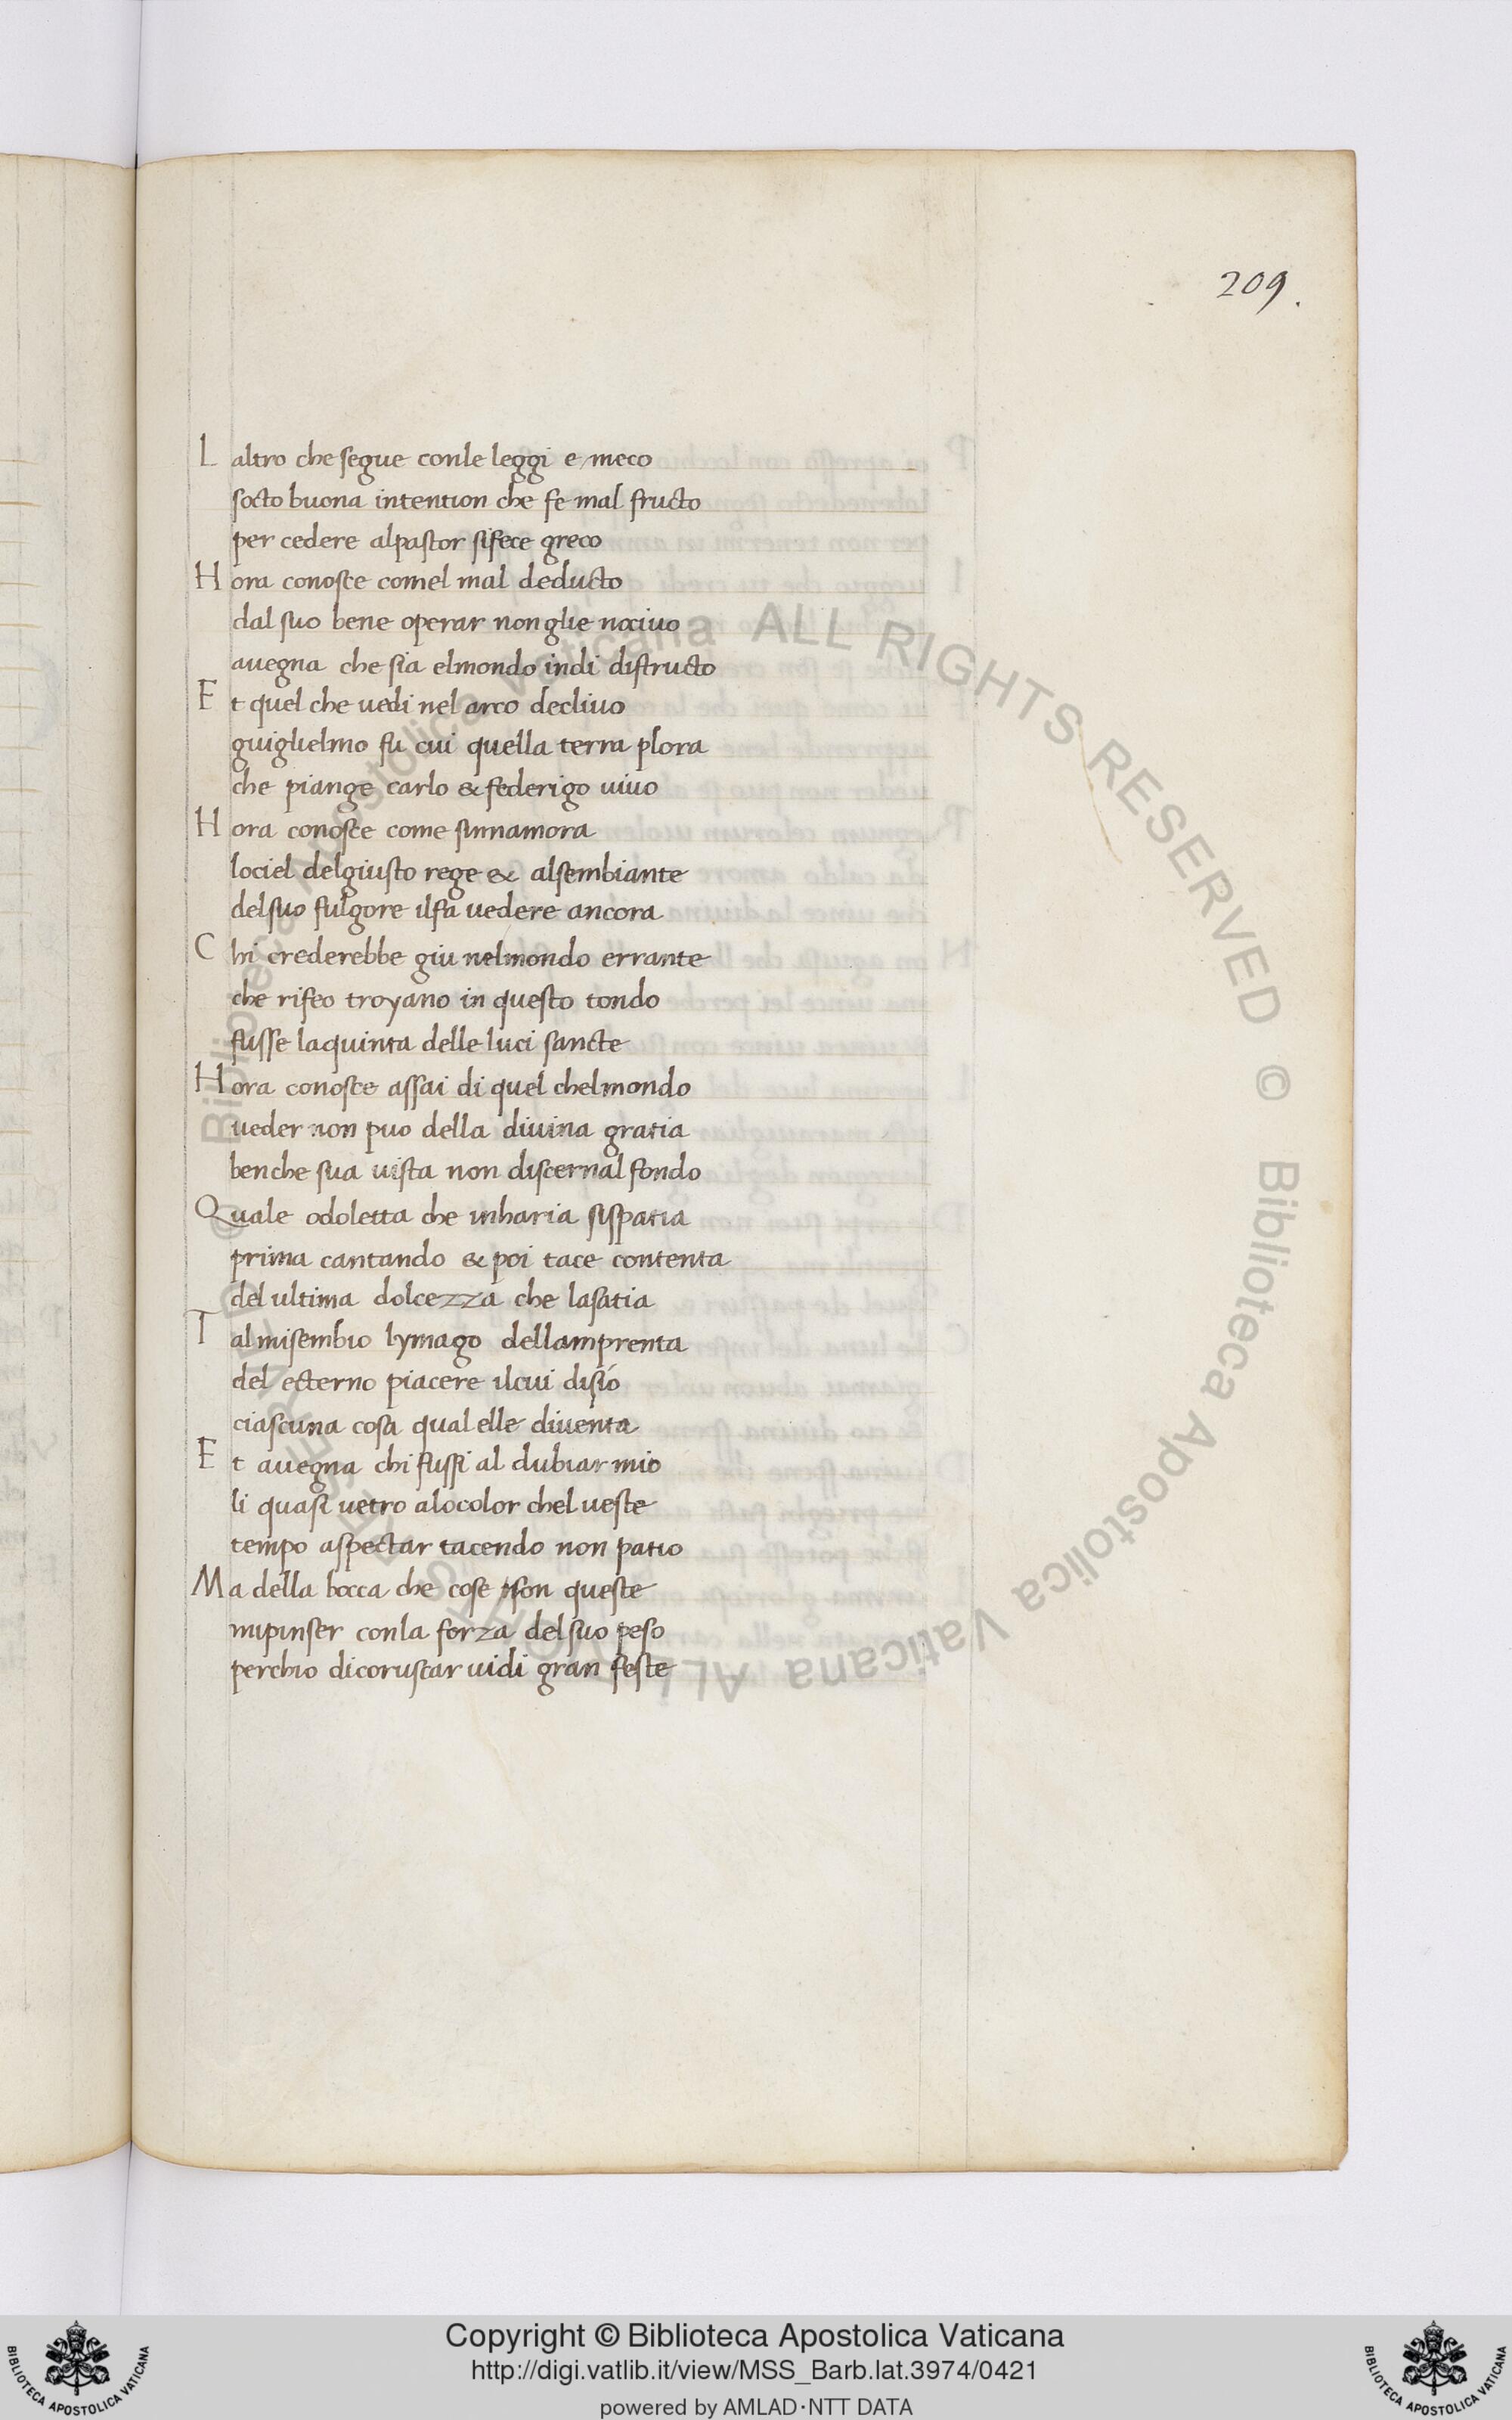 209.
L altro che segue conle leggi e meco
socto buona intention che fe mal fructo
per cedere alpastor sifece greco
H ora conosce comel mal deducto
dal suo bene operar non glie nociuo
auegna che sia elmondo indi distructo
E t quel che uedi nel arco decliuo
guiglielmo fu cui quella terra plora
che piange carlo & federigo uiuo
H ora conosce come sinnamora
lociel delgiusto rege & alsembiante
delsuo fulgore ilfa uedere ancora
C hi crederebbe giu nelmondo errante
che rifeo troyano in questo tondo
fusse laquinta delle luci sancte
H ora conosce assai di quel chelmondo
ueder non puo della diuina gratia
benche sua uista non discernal fondo
Q uale odoletta che inharia sispatia
prima cantando & poi tace contenta
del ultima dolcezza che lasatia
T al misembio lymago dellamprenta
del ecterno piacere ilcui disió
ciascuna cosa qual elle diuenta
E t auegna chi fussi al dubiar mio
li quasi uetro alocolor chel ueste
tempo aspectar tacendo non patio
M a della bocca che cose son queste
mipinser conla forza delsuo peso
perchio dicoruscar uidi gran feste
© Biblioteca Apostolica Vaticana ALL RIGHTS RESERVED © Biblioteca Apostolica Vaticana ALL RIGHTS RESERVED
Copyright © Biblioteca Apostolica Vaticana
http://digi.vatlib.it/view/MSS_Barb.lat.3974/0421
powered by AMLAD·NTT DATA
BIBLIOTECA APOSTOLICA VATICANA
BIBLIOTECA APOSTOLICA VATICANA